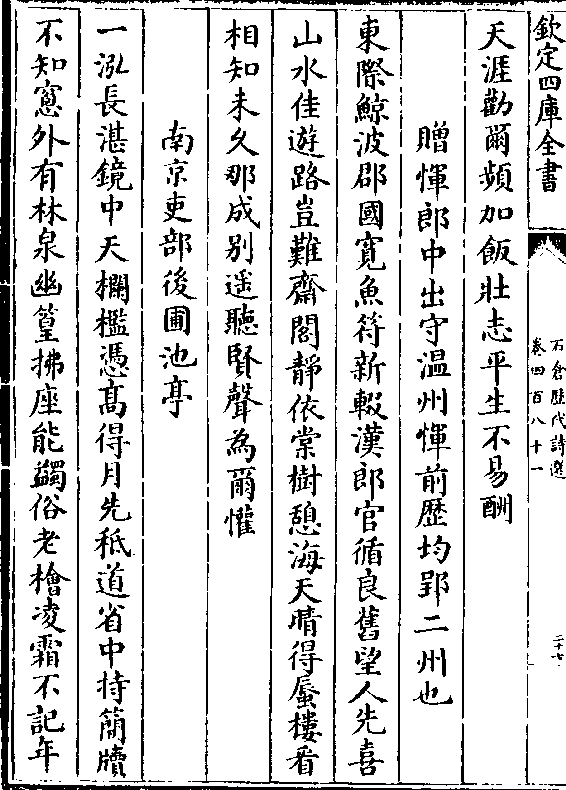 欽定四庫全書
石倉歷代詩選
卷四百八十一
二十七
天涯勸爾頻加飯壯志平生不易酬
贈惲郎中出守温州惲前歴均郢二州也
東際鯨波郡國寛魚符新輟漢郎官循良舊望人先喜
山水佳遊路豈難齋閣靜依棠樹憩海天晴得蜃樓看
相知未久那成别遥聽賢聲為爾懽
南京吏部後圃池亭
一泓長湛鏡中天欄檻憑髙得月先秪道省中持簡牘
不知窻外有林泉幽篁拂座能蠲俗老檜凌霜不記年